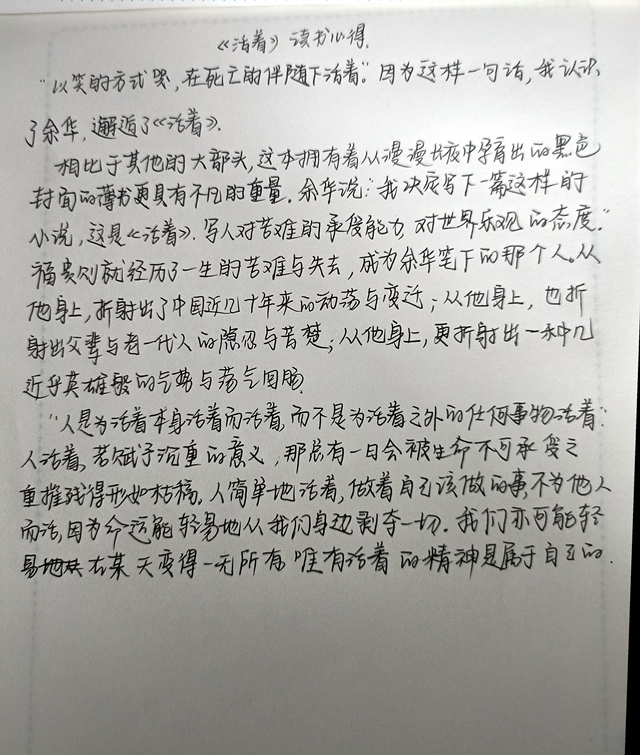 《活着》读书心得.
"以笑的方式哭,在死亡的伴随下活着."因为这样一句话,我认识
了余华,邂逅了《活着》.
相比于其他的大部头,这本拥有着从漫漫长夜中孕育出的黑色
封面的薄书更具有不凡的重量.余华说:"我决定写下一篇这样的
小说,这是《活着》.写人对苦难的承受能力,对世界乐观的态度."
福贵则就经历了一生的苦难与失去,成为余华笔下的那个人。从
他身上,折射出了中国近几十年来的动荡与变迁;从他身上,也折
射出父辈与老一代人的隐忍与苦楚;从他身上,更折射出一种几
近乎英雄般的气势与荡气回肠.
"人是为活着本身活着而活着,而不是为活着之外的任何事物活着".
人活着,若赋予沉重的意义,那总有一日会被生命不可承受之
重摧残得形如枯稿.人简单地活着,做着自己该做的事,不为他人
而活,因为命运能轻易地从我们身边剥夺一切.我们亦可能轻
易地在某天变得一无所有,唯有活着的精神是属于自己的.